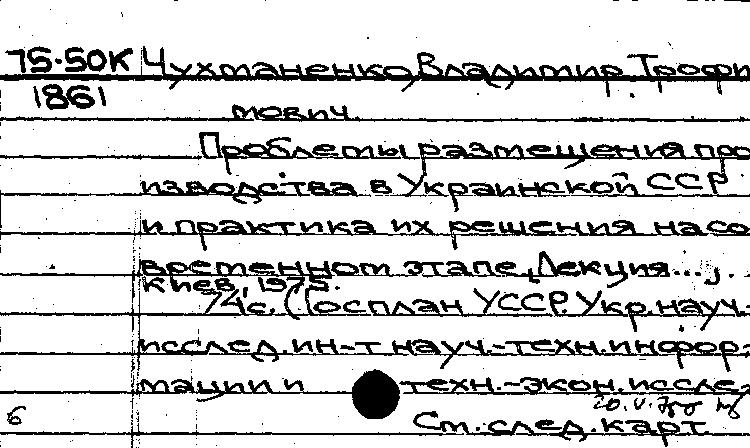 75-50К Чухманенко, Владимир Трофи
1861
мович.
Проблемы размещения про
изводства в Украинской ССР
и практика их решения на со
временном этапе. Лекция...
Киев, 1975.
74 с. (Госплан УССР. Укр. науч.-
исслед. ин-т науч.-техн. инфор-
мации и техн.-экон. иссле-
20.V.
6 См. след. карт.